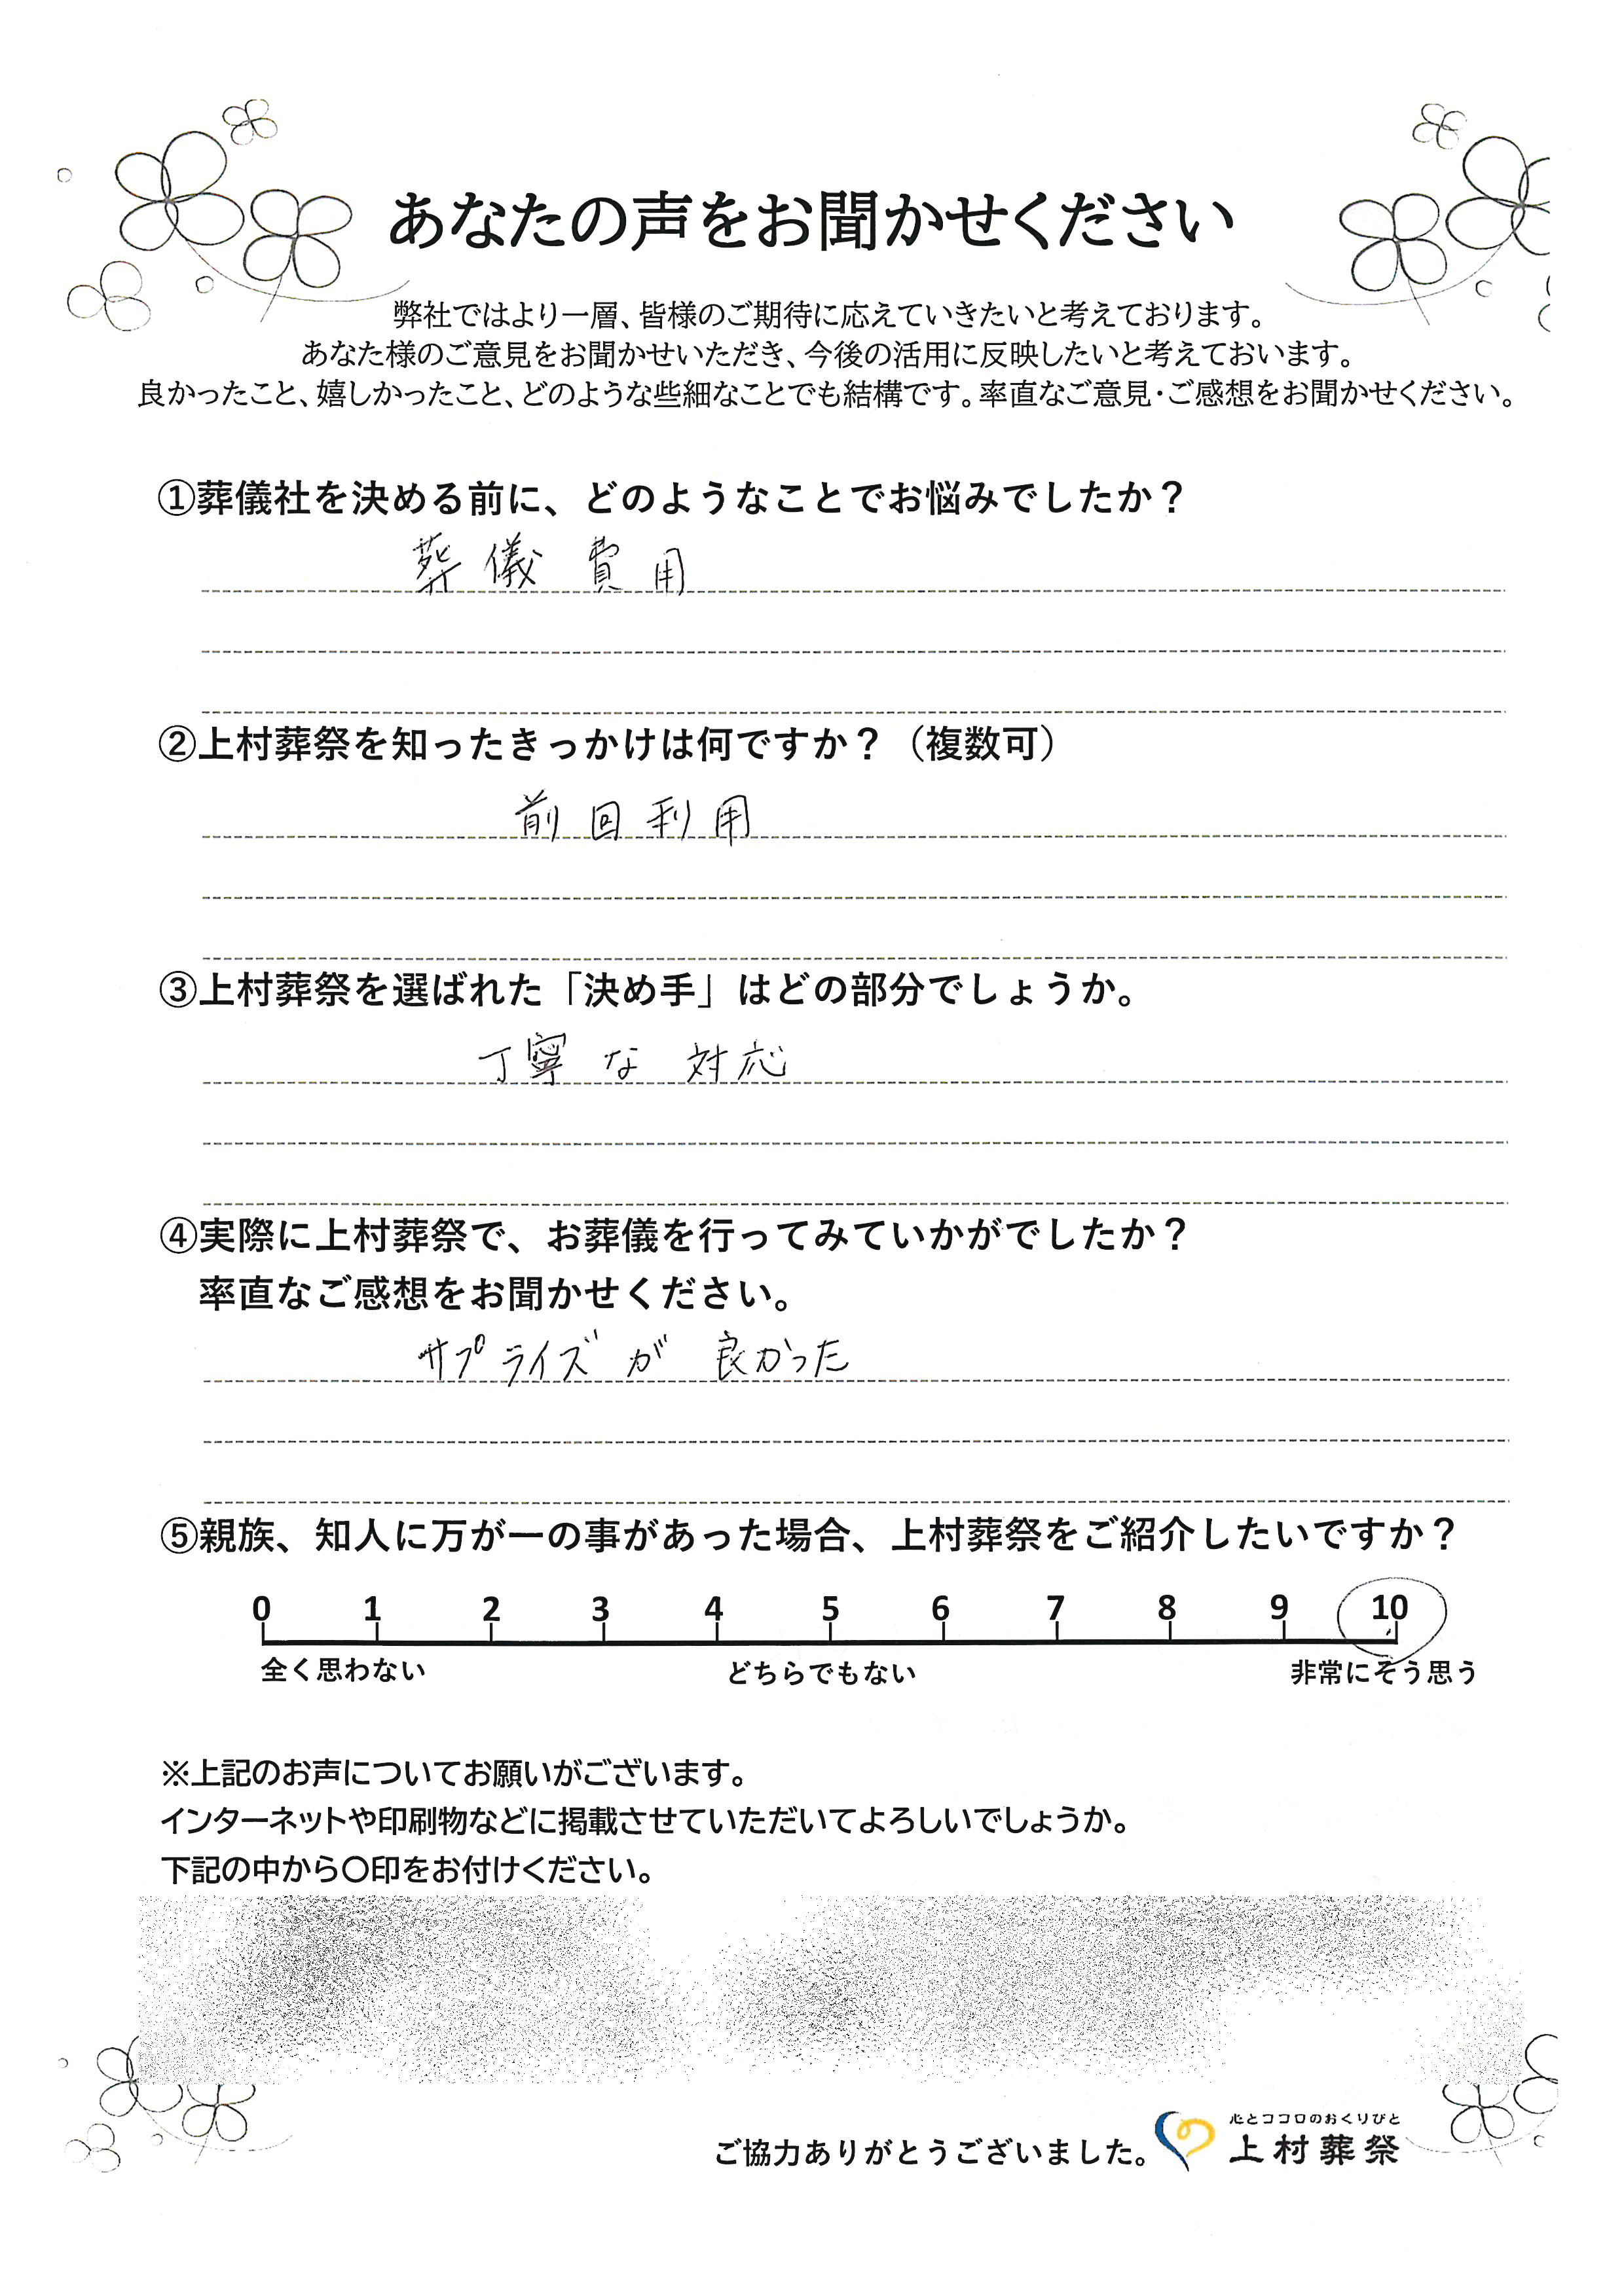 あなたの声をお聞かせください
弊社ではより一層、皆様のご期待に応えていきたいと考えております。
あなた様のご意見をお聞かせいただき、今後の活用に反映したいと考えておいます。
良かったこと、嬉しかったこと、どのような些細なことでも結構です。率直なご意見・ご感想をお聞かせください。
①葬儀社を決める前に、どのようなことでお悩みでしたか？
葬儀費用
②上村葬祭を知ったきっかけは何ですか？（複数可）
前回利用
③上村葬祭を選ばれた「決め手」はどの部分でしょうか。
丁寧な対応
④実際に上村葬祭で、お葬儀を行ってみていかがでしたか？
率直なご感想をお聞かせください。
サプライズが良かった
⑤親族、知人に万が一の事があった場合、上村葬祭をご紹介したいですか？
0 1 2 3 4 5 6 7 8 9 10
全く思わない どちらでもない 非常にそう思う
※上記のお声についてお願いがございます。
インターネットや印刷物などに掲載させていただいてよろしいでしょうか。
下記の中から〇印をお付けください。
心とココロのおくりびと
ご協力ありがとうございました。 上村葬祭